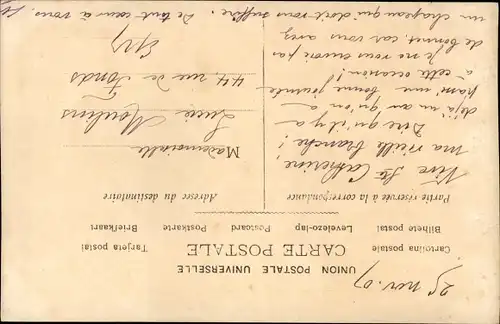 25 nov. 07
UNION POSTALE UNIVERSELLE
CARTE POSTALE
Cartolina postale Levelezo-lap Postcard Tarjeta postal
Bilhete postal Postkarte Briefkaart
Partie réservée à la correspondance
Adresse du destinataire
Vive Ste Catherine,
ma vieille branche!
Dire qu'il y a
déjà un an qu'on a
passé une bonne journée
à cette occasion!
Je ne vous envoie pas
de bonnet, car vous avez
un chapeau qui doit vous suffire. De tout cœur à vous.
Mademoiselle
Lucie Moulins
44, rue de Fonds